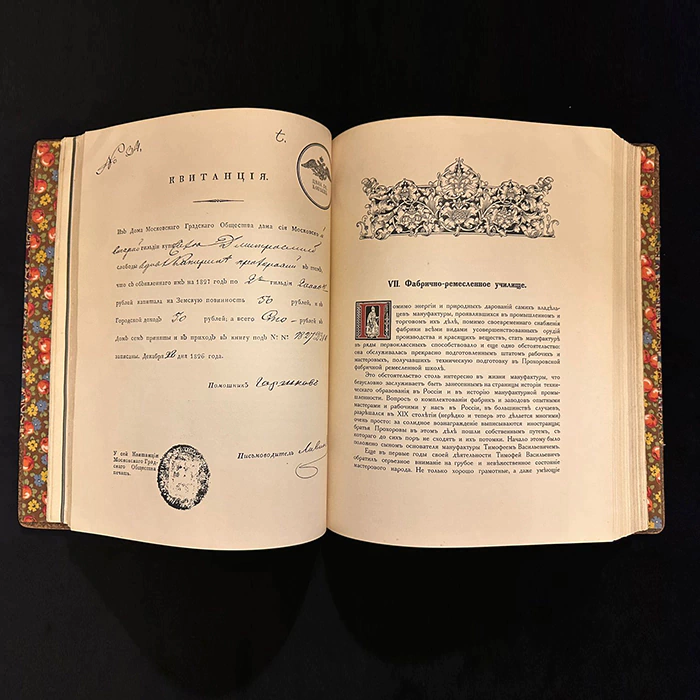 № 34.
КВИТАНЦІЯ.
Изъ Дома Московскаго Градскаго Общества дана сія Московской
гильдіи купц
слободы въ томъ,
что съ объявленнаго имъ на 1827 годъ по 2й гильдіи
рублей капитала на Земскую повинность 50 рублей, и въ
Городской доходъ 50 рублей, а всего Сто рублей въ
Домѣ семъ приняты и въ приходъ въ книгу подъ №:
записаны. Декабря 1826 года.
Помощникъ
Письмоводитель
У сей Квитанціи
Московскаго Град-
скаго Общества
печать.
VII. Фабрично-ремесленное училище.
Помимо энергіи и природныхъ дарованій самихъ владѣль-
цевъ мануфактуры, проявлявшихся въ промышленномъ и
торговомъ ихъ дѣлѣ, помимо своевременнаго снабженія
фабрики всѣми видами усовершенствованныхъ орудій
производства и красящихъ веществъ, стать мануфактурѣ
въ ряды первоклассныхъ способствовало и еще одно обстоятельство:
она обслуживалась прекрасно подготовленнымъ штатомъ рабочихъ и
мастеровыхъ, получавшихъ техническую подготовку въ Прохоровской
фабричной ремесленной школѣ.
Это обстоятельство столь интересно въ жизни мануфактуры, что
безусловно заслуживаетъ быть занесеннымъ на страницы исторіи техни-
ческаго образованія въ Россіи и въ исторію мануфактурной промы-
шленности. Вопросъ о комплектованіи фабрикъ и заводовъ опытными
мастерами и рабочими у насъ въ Россіи, въ большинствѣ случаевъ,
разрѣшался въ XIX столѣтіи (нерѣдко и теперь это дѣлается многими)
очень просто: за солидное вознагражденіе выписываются иностранцы;
братья Прохоровы въ этомъ дѣлѣ пошли собственнымъ путемъ, съ
котораго до сихъ поръ не сходятъ и ихъ потомки. Начало этому было
положено сыномъ основателя мануфактуры Тимофеемъ Васильевичемъ.
Еще въ первые годы своей дѣятельности Тимофей Васильевичъ
обратилъ серьезное вниманіе на грубое и невѣжественное состояніе
мастерового народа. Не только хорошо грамотные, а даже умѣющіе